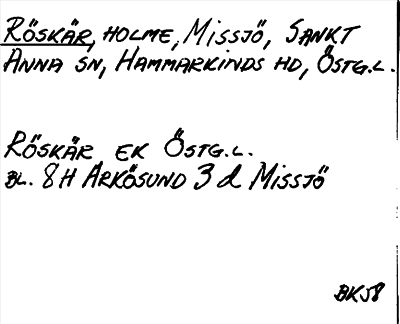 Röskär, holme, Missjö, Sankt
Anna sn, Hammarkinds hd, Östg.l.
Röskär ek Östg.l.
bl. 8H Arkösund 3d Missjö
BKJ8